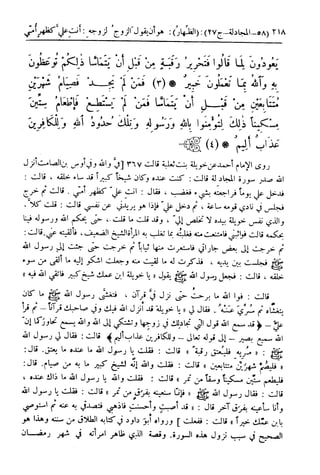 ٢١٨ (٥٨- المجادلة- ج٢٧) : (الظهار) : هو أن يقول الزوج لزوجه : أنت علي كظهر أمي
يَعُودُونَ لِمَا قَالُوا فَتَحْرِيرُ رَقَبَةٍ مِن قَبْلِ أَن يَتَمَاسَّا ذَلِكُمْ تُوعَظُونَ
بِهِ وَاللَّهُ بِمَا تَعْمَلُونَ خَبِيرٌ * (٣) فَمَن لَّمْ يَجِدْ فَصِيَامُ شَهْرَيْنِ
مُتَتَابِعَيْنِ مِن قَبْلِ أَن يَتَمَاسَّا فَمَن لَّمْ يَسْتَطِعْ فَإِطْعَامُ سِتِّينَ
مِسْكِينًا ذَلِكَ لِتُؤْمِنُوا بِاللَّهِ وَرَسُولِهِ وَتِلْكَ حُدُودُ اللَّهِ وَلِلْكَافِرِينَ
عَذَابٌ أَلِيمٌ * (٤)
روى الإمام أحمد عن خويلة بنت ثعلبة قالت ٣٦٧ [في والله وفي أوس بن الصامت أنزل
الله صدر سورة المجادلة قالت : كنت عنده وكان شيخاً كبيراً قد ساء خلقه ، قالت :
فدخل علي يوماً فراجعته بشيء فغضب ، فقال : أنت علي كظهر أمي . قالت ثم خرج
فجلس في نادي قومه ساعة ، ثم دخل علي فإذا هو يريدني عن نفسي قالت : قلت كلا
والذي نفس خويلة بيده لا تخلص إلي وقد قلت ما قلت ، حتى يحكم الله ورسوله فينا
بحكمه قالت فواثبني فامتنعت منه فغلبته بما تغلب به المرأة الشيخ الضعيف ، فألقيته عني قالت :
ثم خرجت إلى بعض جاراتي فاستعرت منها ثياباً ثم خرجت حتى جئت إلى رسول الله
ﷺ فجلست بين يديه ، فذكرت له ما لقيت منه وجعلت أشكو إليه ما ألقى من سوء
خلقه ، قالت : فجعل رسول الله ﷺ يقول « يا خويلة ابن عمك شيخ كبير فاتقي الله فيه »
قالت : فوالله ما برحت حتى نزل في قرآن ، فتغشى رسول الله ﷺ ما كان
يتغشاه ثم سري عنه . فقال لي « يا خويلة قد أنزل الله فيك وفي صاحبك قرآناً – ثم قرأ
علي – ﴿ قد سمع الله قول التي تجادلك في زوجها وتشتكي إلى الله والله يسمع تحاوركما إن
الله سميع بصير – إلى قوله تعالى – وللكافرين عذاب أليم ﴾ قالت : فقال لي رسول الله
ﷺ : « مريه فليعتق رقبة » قالت : فقلت يا رسول الله ما عنده ما يعتق . قال :
« فليصم شهرين متتابعين » قالت : فقلت والله إنه لشيخ كبير ما به من صيام . قال :
فليطعم ستين مسكيناً وسقاً من تمر » قالت : فقلت والله يا رسول الله ما ذاك عنده ،
قالت : فقال رسول الله ﷺ « فإنا سنعينه بفرق من تمر » قالت : فقلت يا رسول الله
وأنا سأعينه بفرق آخر قال : « قد أصبت وأحسنت فاذهبي فتصدقي به عنه ثم استوصي
بابن عمك خيراً » قالت : ففعلت ] ورواه أبو داود في كتابه الطلاق من سننه وهذا هو
الصحيح في سبب نزول هذه السورة . وقصة الذي ظاهر امرأته في شهر رمضان